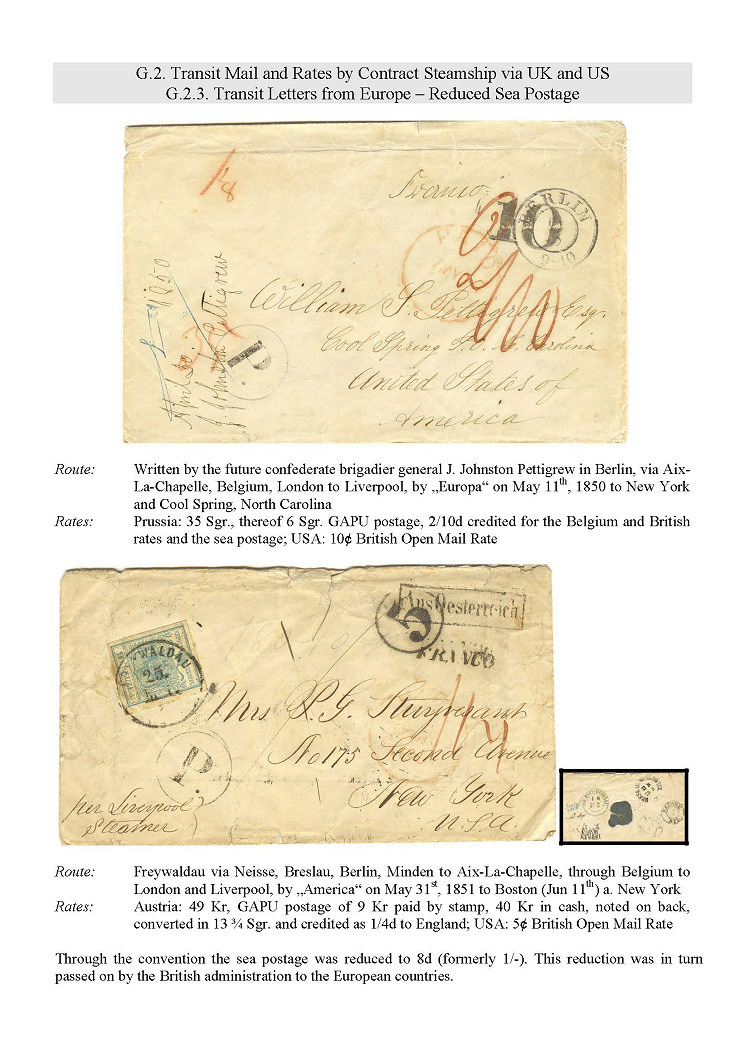 G.2. Transit Mail and Rates by Contract Steamship via UK and US
G.2.3. Transit Letters from Europe – Reduced Sea Postage
1/8
Franco
10
BERLIN
9-10
April 30. 1850
J. Johnston Pettigrew
P.
William S. Pettigrew Esq.
Cool Spring P.O. N. Carolina
United States of
America
Route: Written by the future confederate brigadier general J. Johnston Pettigrew in Berlin, via Aix-
La-Chapelle, Belgium, London to Liverpool, by „Europa“ on May 11th, 1850 to New York
and Cool Spring, North Carolina
Rates: Prussia: 35 Sgr., thereof 6 Sgr. GAPU postage, 2/10d credited for the Belgium and British
rates and the sea postage; USA: 10¢ British Open Mail Rate
Aus Oesterreich
5
FRANCO
FREYWALDAU
25.
Mrs P. G. Stuyvesant
No 175 Second Avenue
New York
U.S.A.
P.
per Liverpool
Steamer
Route: Freywaldau via Neisse, Breslau, Berlin, Minden to Aix-La-Chapelle, through Belgium to
London and Liverpool, by „America“ on May 31st, 1851 to Boston (Jun 11th) a. New York
Rates: Austria: 49 Kr, GAPU postage of 9 Kr paid by stamp, 40 Kr in cash, noted on back,
converted in 13 ¾ Sgr. and credited as 1/4d to England; USA: 5¢ British Open Mail Rate
Through the convention the sea postage was reduced to 8d (formerly 1/-). This reduction was in turn
passed on by the British administration to the European countries.